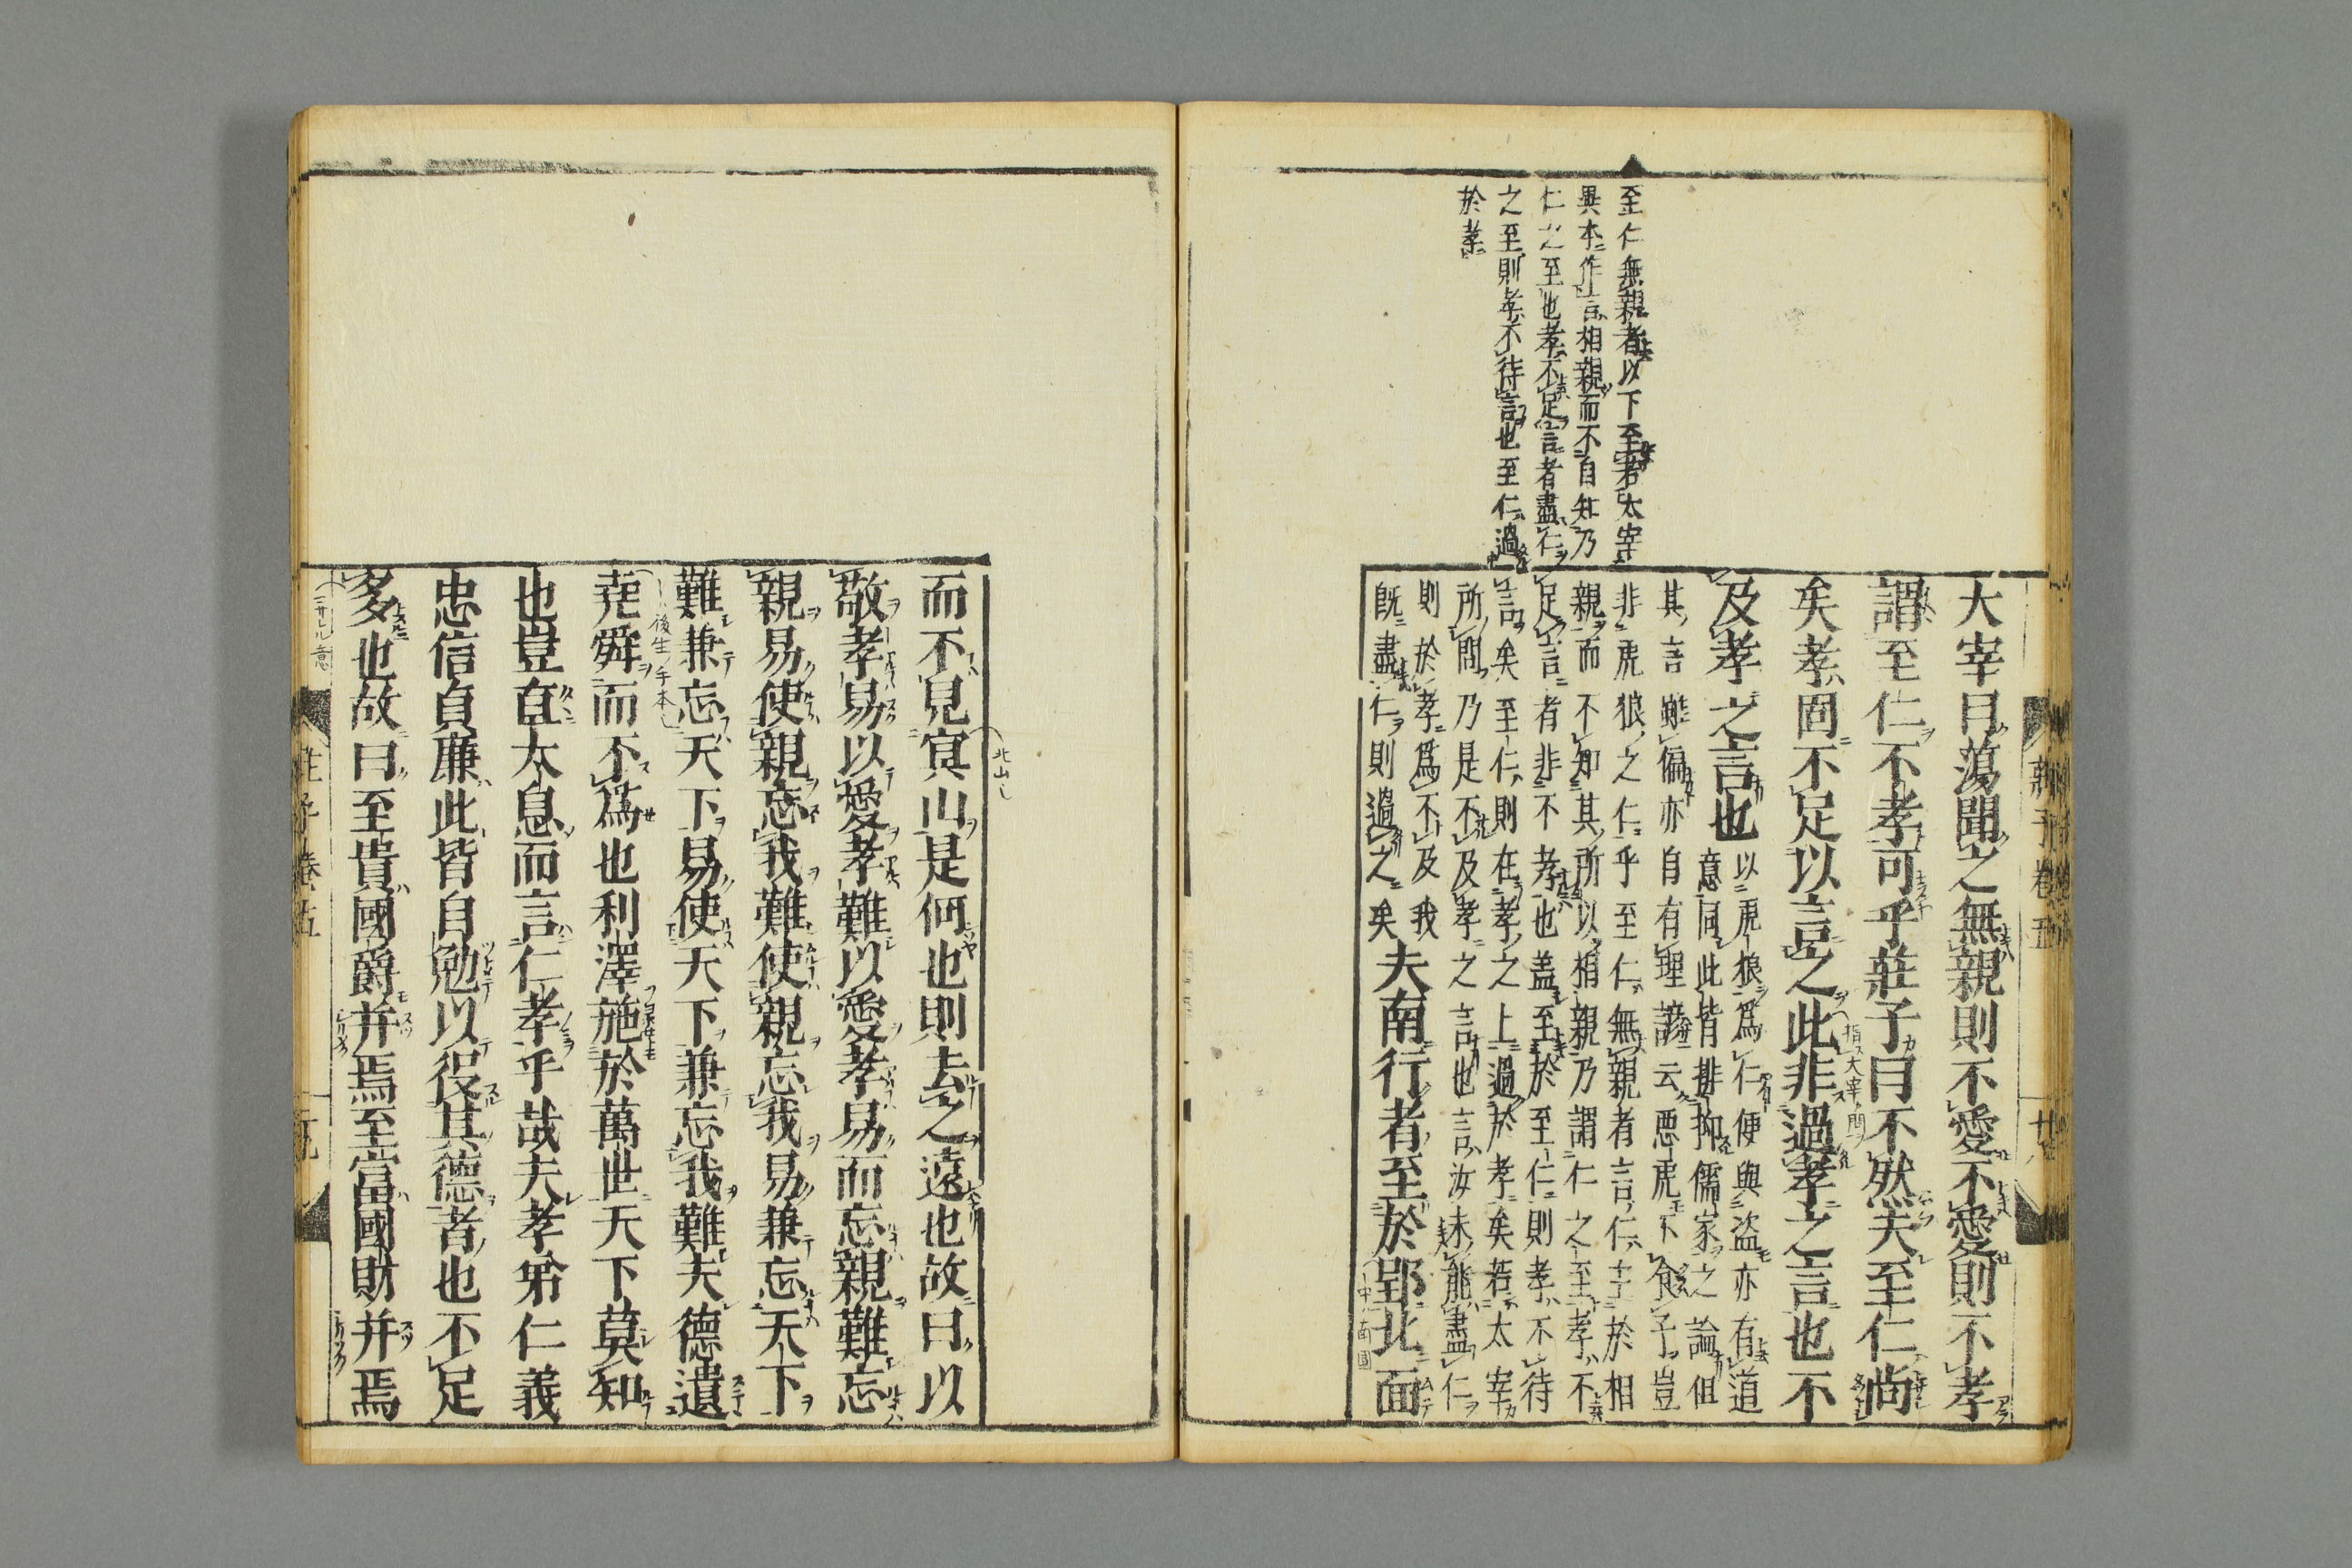 至仁無親者以下至若太宰
異本作言相親而不自知乃
仁之至也孝不足言者盡仁
之至則孝不待言也至仁過
於孝
大宰曰蕩聞之無親則不愛不愛則不孝
謂至仁不孝可乎莊子曰不然夫至仁尚
矣孝固不足以言之此非過孝之言也不
指大宰問
及孝之言也
以虎狼爲仁便與盜亦有道
意同此皆排抑儒家之論但
其言雖偏亦自有理諺云惡虎不食子豈
非虎狼之仁乎至仁無親者言仁主於相
親而不知其所以相親乃謂仁之至孝不
足言者非不孝也蓋至於至仁則孝不待
言矣至仁則在孝之上過於孝矣若太宰
所問乃是不及孝之言也言汝未能盡仁
則於孝爲不及我
旣盡仁則過之矣
夫南行者至於郢北面
而不見冥山是何也則去之遠也故曰以
北山
敬孝易以愛孝難以愛孝易而忘親難忘
親易使親忘我難使親忘我易兼忘天下
難兼忘天下易使天下兼忘我難夫德遺
後生手本
堯舜而不爲也利澤施於萬世天下莫知
也豈直太息而言仁孝乎哉夫孝弟仁義
忠信貞廉此皆自勉以役其德者也不足
多也故曰至貴國爵并焉至富國財并焉